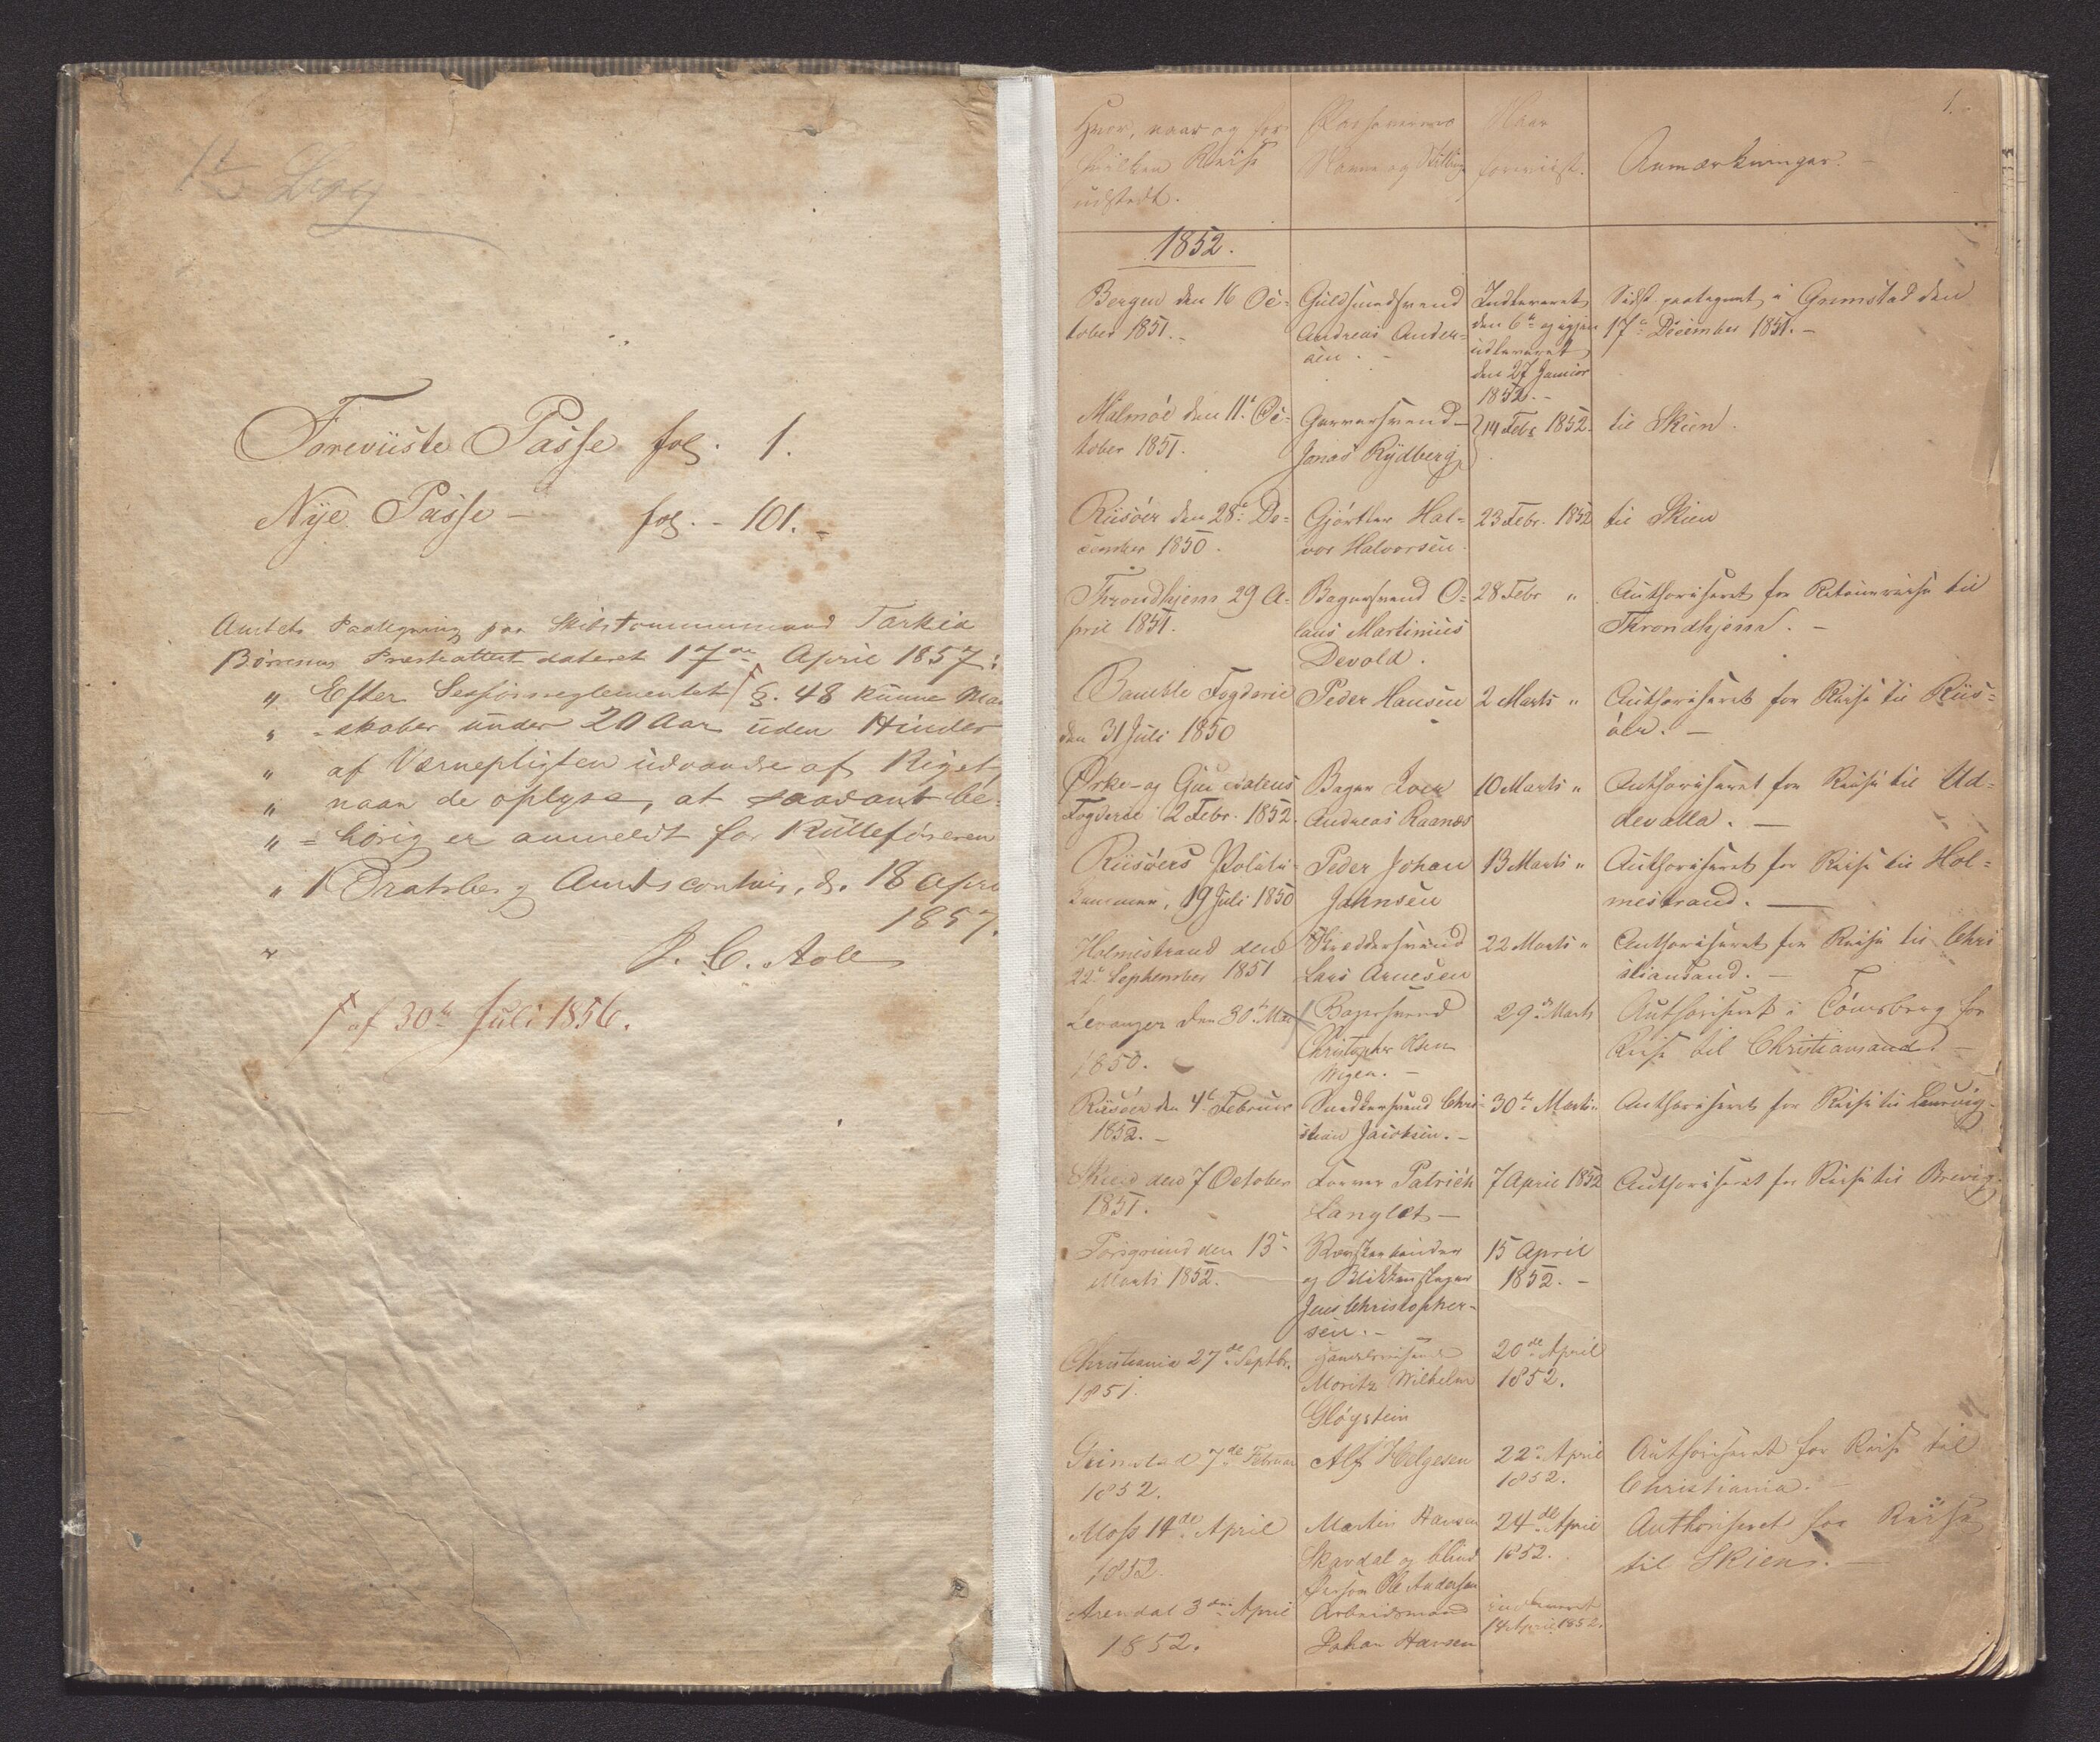 Foreviiste Passe fol. 1.
Nÿe Passe - fol. - 101. -
Amtets Paategning paa Skibstømmermand Tarkil
Børresens Præsteattest dateret 17de April 1857:
" Efter Sessionsreglementet § 48 kunne Man
" = skaber under 20 Aar uden Hinder
" af Værnepligten udvandre af Riget,
" naar de oplyse, at saadant be-
" = hørig er anmeldt for Rulleføreren
" Bratsberg Amtscontoir, d. 18 Apri
1857.
" J. C. Aall
af 30te Juli 1856.
1.
Hvor, naar og for
hvilken Reise
udstedt.
Passørernes
Navne og Stilling
Naar
foreviist.
Anmærkninger. -
1852.
Bergen den 16 Oc-
tober 1851. -
Guldsmedsvend
Andreas Ander-
sen. -
Indleveret
den 6te og igjen
udleveret
den 27 Januar
1852. -
Sidst paategnet i Grimstad den
17de December 1851. -
Malmöe den 11te Oc-
tober 1851.
Garversvend -
Jonas Rydberg
14 Febr 1852.
til Skien.
Riisøer den 28de De-
cember 1850.
Gjørtler Hal-
vor Halvorsen.
23 Febr. 1852
til Skien
Throndhjem 29 A-
pril 1851.
Bagersvend O-
laus Martinius
Devold.
28 Febr "
Authoriseret for Retourreise til
Throndhjem. -
Bamble Fogderie
den 31 Juli 1850
Peder Hansen
2 Marts "
Authoriseret for Reise til Riis-
øer. -
Orke- og Guldalens
Fogderie 2 Febr. 1852.
Bager
Andreas Raanæs
10 Marts "
Authoriseret for Reise til Ud-
devalla. -
Riisøers Politi-
kammer, 19 Juli 1850
Peder Johan
Jahnsen
13 Marts "
Authoriseret for Reise til Hol-
mestrand. -
Holmestrand den
22de September 1851
Skræddersvend
Lars Arnesen
22 Marts "
Authoriseret for Reise til Chri
stiansand. -
Levanger den 30te Mai
1850.
Bagersvend
Christopher Olsen
Wigen. -
29de Marts
Authoriseret i Tönsberg for
Reise til Christiansand. -
Riisøer den 4de Februar
1852. -
Snedkersvend Chri-
stian Jacobsen. -
30te Marts "
Authoriseret for Reise til Laurvig -
Skien den 7 October
1851.
Farver Patrich
Langlet -
7 April 1852
Authoriseret for Reise til Brevig.
Porsgrund den 13de
Marts 1852.
Børstenbinder
og Blikkenslager
Jens Christopher-
sen. -
15 April
1852. -
Christiania 27de Septbr.
1851.
Handelsreisende
Moritz Wilhelm
Gløystein
20de April
1852.
Grimstad 7de Februar
1852.
Alf Helgesen
22de April
1852.
Authoriseret for Reise til
Christiania. -
Moss 14de April
1852.
Martin Hansen
Skavdal og blind
Person Ole Andersen
24de April
1852.
Authoriseret for Reise
til Skien. -
Arendal 3die April
1852.
Arbeidsmand
Johan Hansen
Indleveret
14 April 1852.